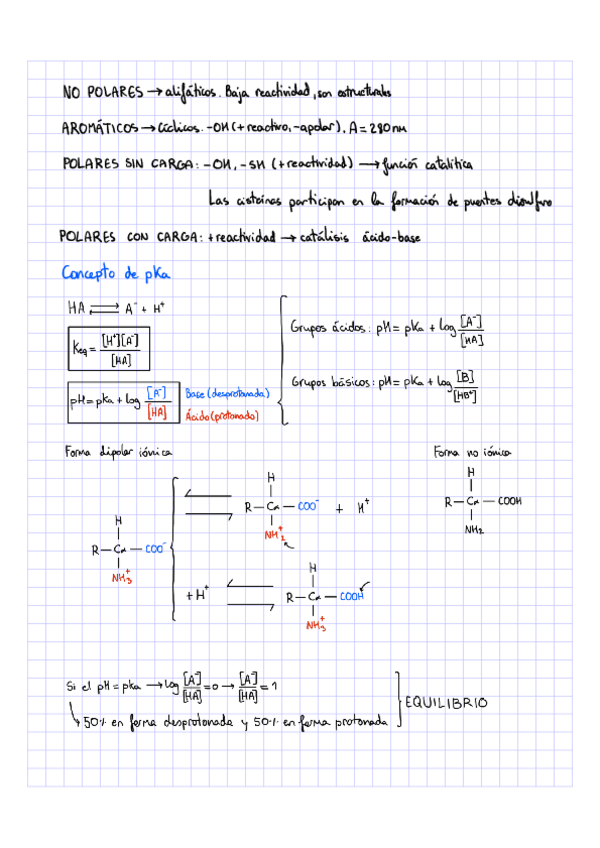 NO POLARES → alifáticos. Baja reactividad, son estructurales
AROMÁTICOS → Cíclicos. -OH (+ reactivo, - apolar). A = 280 nm
POLARES SIN CARGA: -OH, -SH (+ reactividad) → función catalítica
Las cisteínas participan en la formación de puentes disulfuro
POLARES CON CARGA: + reactividad → catálisis ácido-base
Concepto de pKa
HA ⇌ A⁻ + H⁺
Keq = [H⁺][A⁻] / [HA]
pH = pKa + log [A⁻] / [HA]
Base (desprotonada)
Ácido (protonado)
Grupos ácidos: pH = pKa + log [A⁻] / [HA]
Grupos básicos: pH = pKa + log [B] / [HB⁺]
Forma dipolar iónica
Forma no iónica
H
R — Cα — COO⁻
NH₃⁺
H
R — Cα — COO⁻ + H⁺
NH₂⁺
+ H⁺
H
R — Cα — COOH
NH₃⁺
H
R — Cα — COOH
NH₂
Si el pH = pKa → log [A⁻] / [HA] = 0 → [A⁻] / [HA] = 1
↳ 50% en forma desprotonada y 50% en forma protonada
EQUILIBRIO